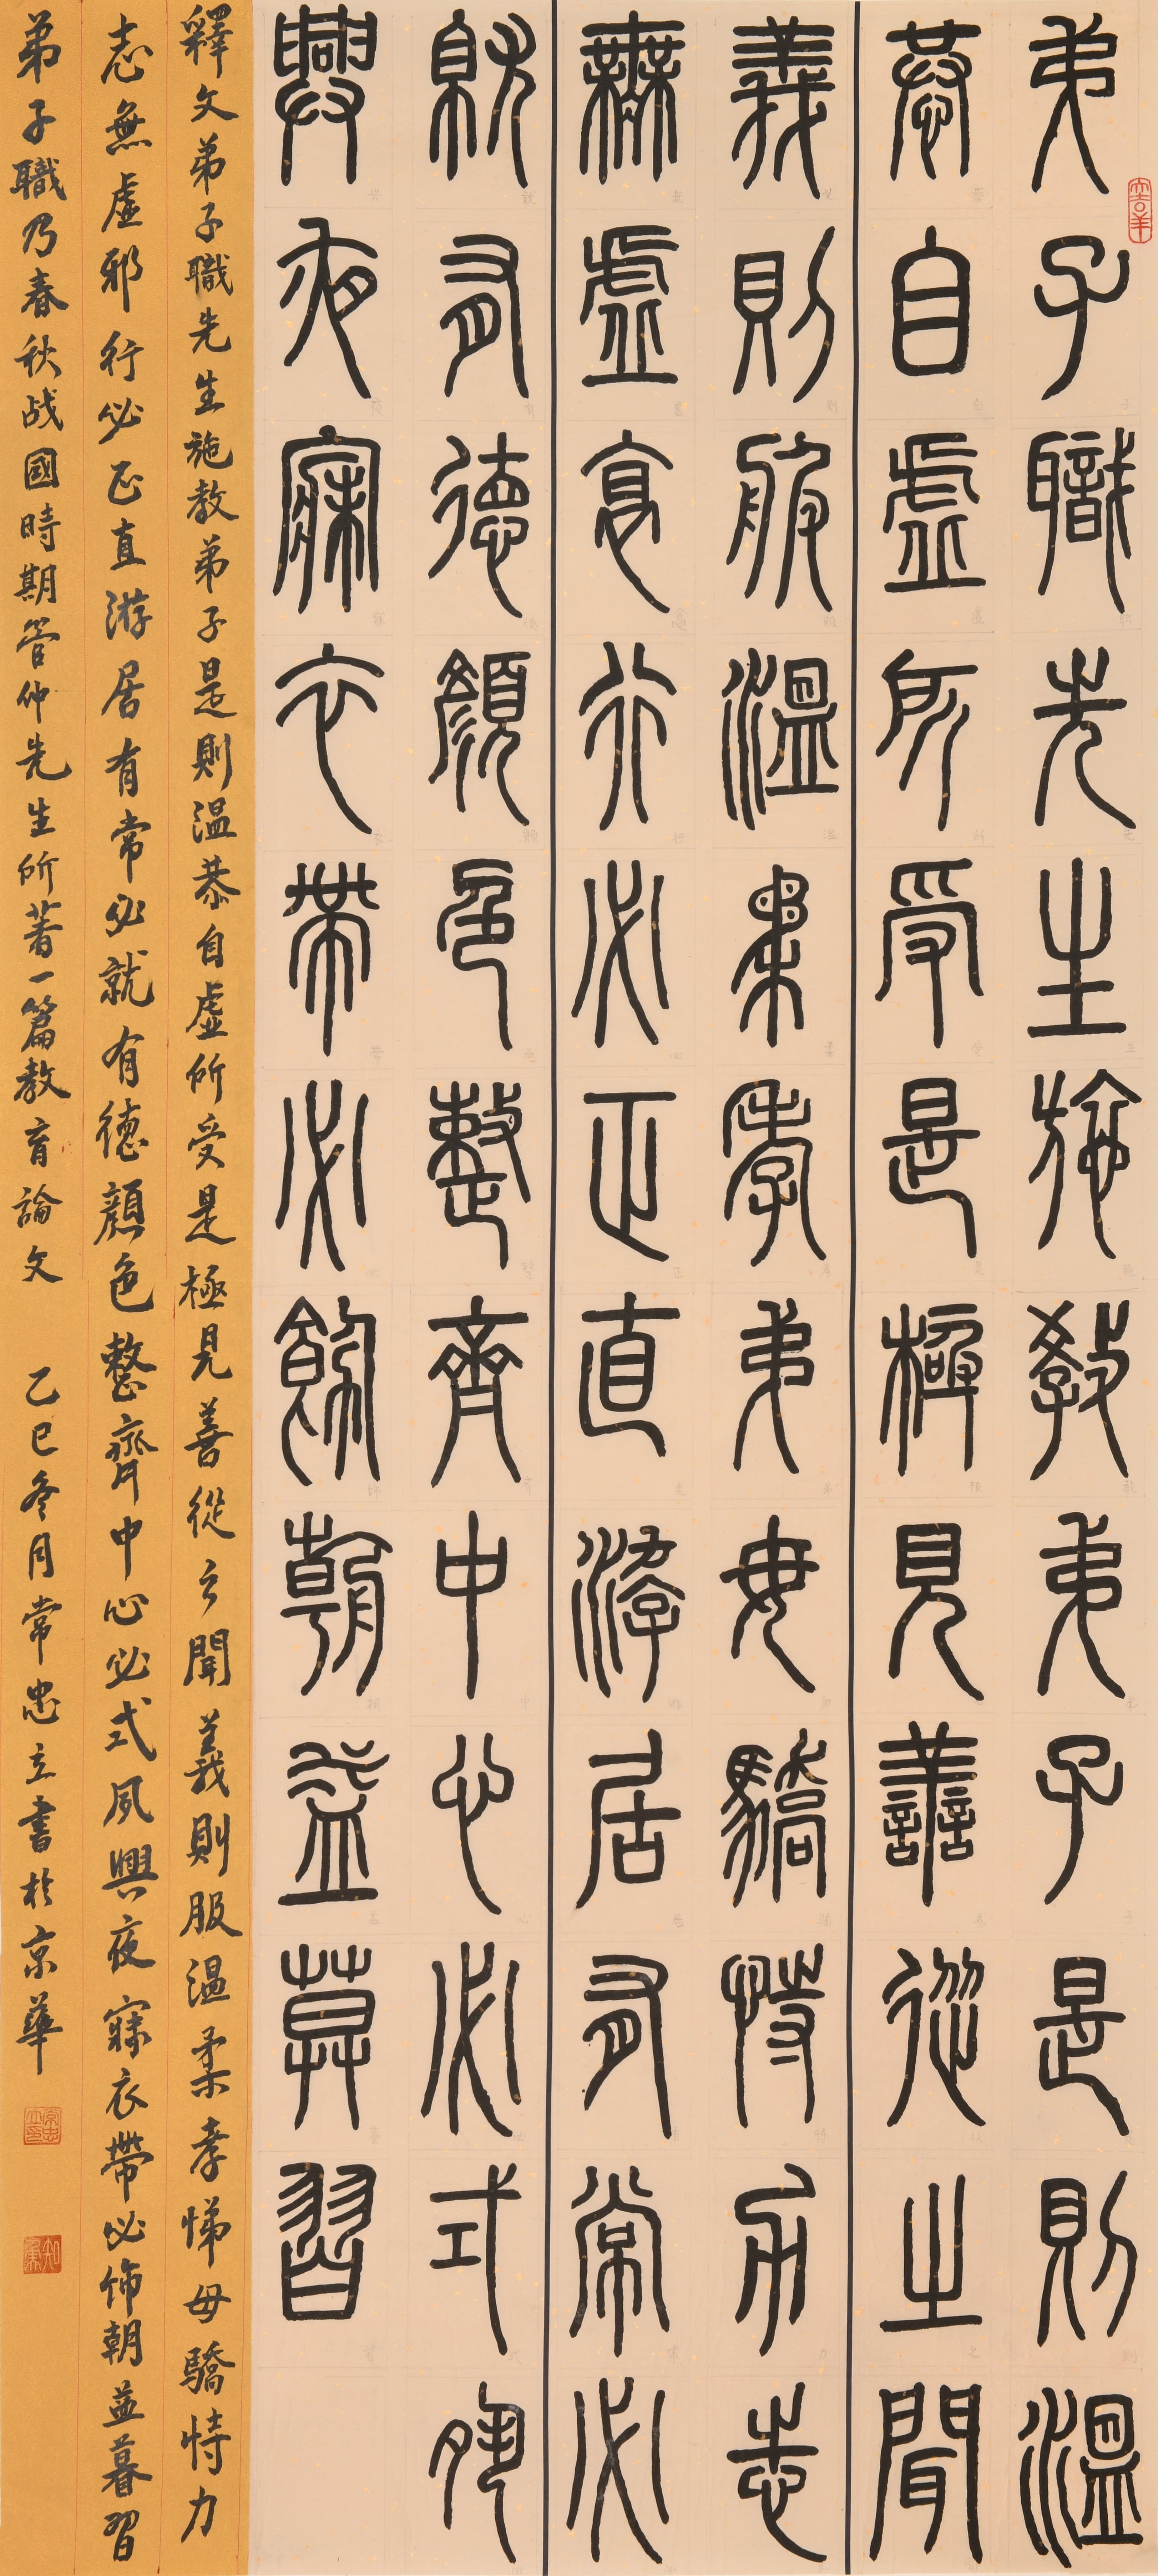 弟子職先生施教弟子是則溫
恭自虛所受是極見善從之聞
義則服溫柔孝弟毋驕恃力志
無虛邪行必正直游居有常必
就有德顏色整齊中心必式夙
興夜寐衣帶必飾朝益莫習
釋文弟子職先生施教弟子是則温恭自虛所受是極見善從之聞義則服温柔孝悌毋驕恃力
志無虛邪行必正直游居有常必就有德顏色整齊中心必式夙興夜寐衣帶必飾朝益暮習
弟子職乃春秋战國時期管仲先生所著一篇教育論文 乙巳冬月常忠立書於京華